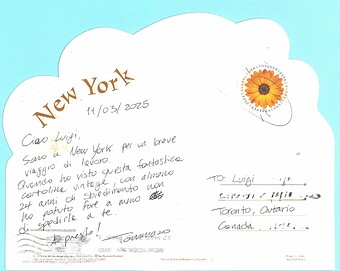 New York
11/03/2025
Ciao Luigi,
Sono a New York per un breve
viaggio di lavoro.
Quando ho visto questa fantastica
cartolina vintage, con almeno
24 anni di sbiadimento non
ho potuto fare a meno
di spedirla a te.
A presto!
Tommaso
TO: Luigi
Toronto, Ontario
Canada